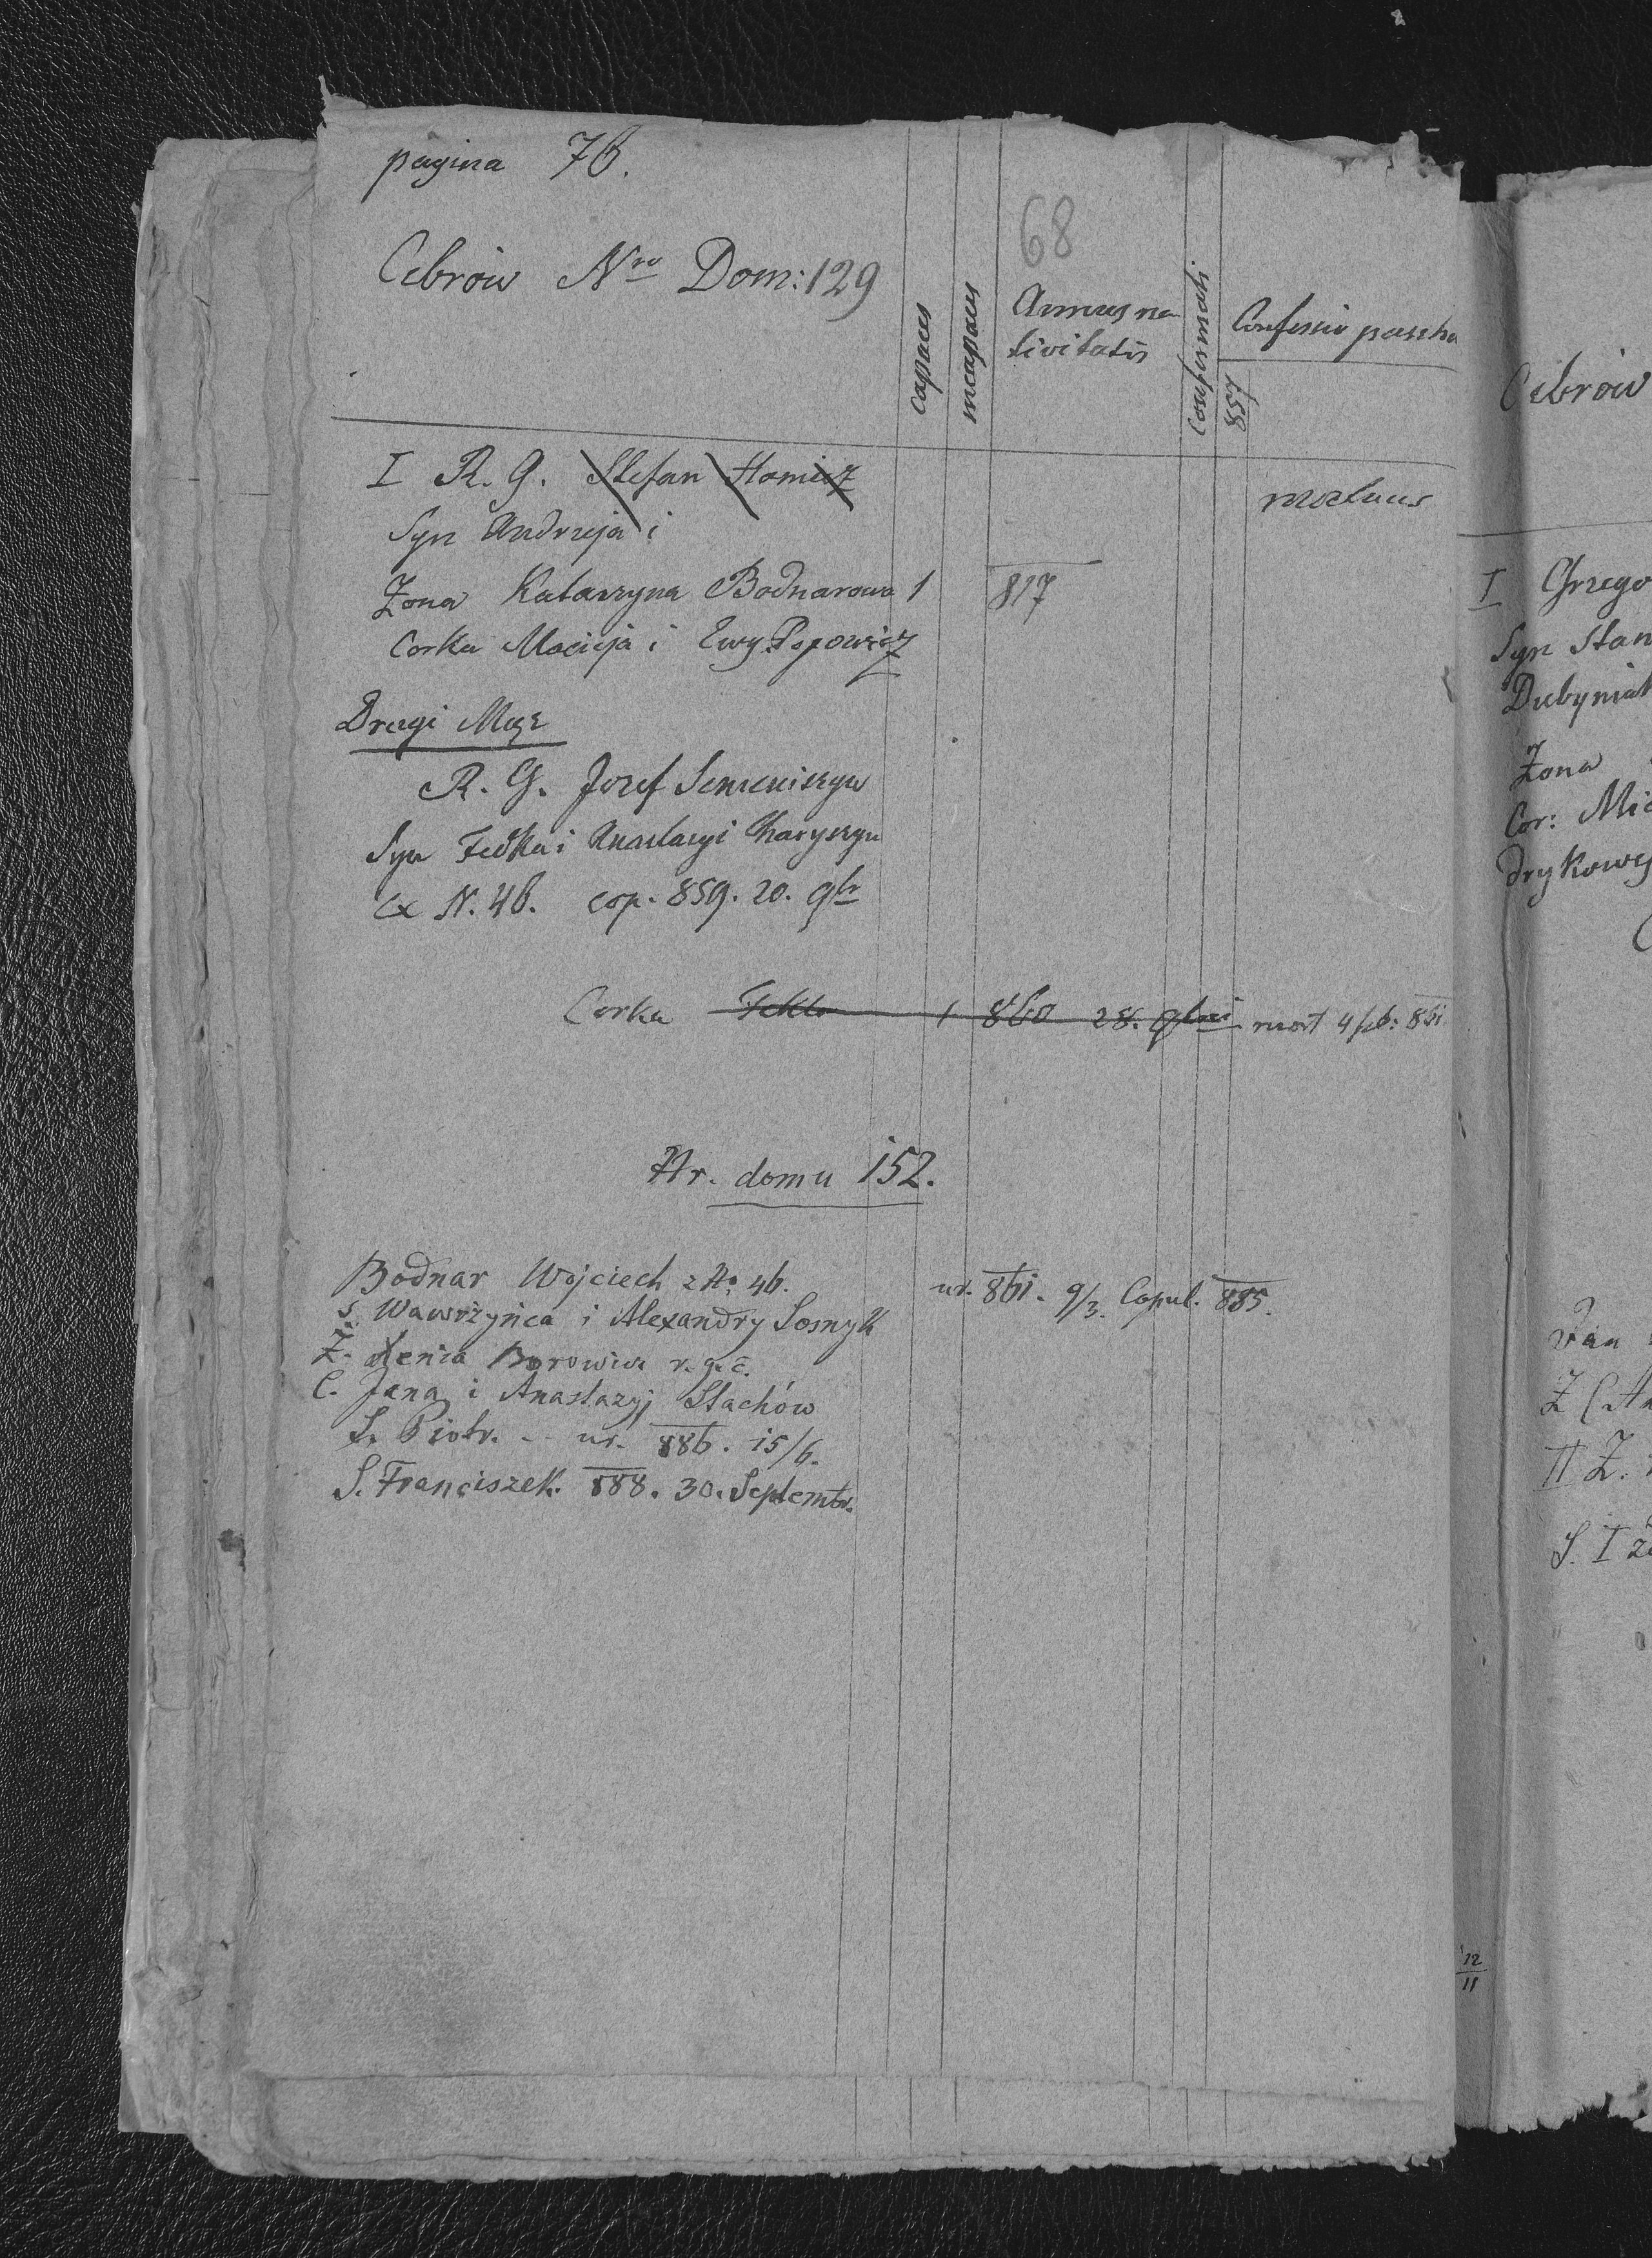 pagina 76.
68
Cebrów Nro Dom: 129
capaces
incapaces
Annus na
tivitatis
confirmati
Confessio pascha
857
I R. G. Stefan Homicz
mortuus
Syn Andrzeja i
Żona Katarzyna Bodnarowa 1 817
Corka Macieja i Ewy Popowicz
Drugi Mąż
R. G. Jozef Semeniszyn
Syn Fedka i Anastazyi Charyszyn
ex N. 46. cop. 859. 20. 9br
Corka Tekla 1 860 28. 9bri mort 4 feb: 861
Nr. domu 152.
Bodnar Wojciech z No 46. ur. 861. 9/3. Copul. 885.
S. Wawrzyńca i Alexandry Sosnyk
Ż. Xenia Borowicz r. g. c.
C. Jana i Anastazyj Stachów
S. Piotr. -- ur. 886. 15/6.
S. Franciszek. 888. 30. Septembr.
Cebrów
I Grzego
Syn Stan
Dubyniak
Żona
Cor: Mic
drykowej
Jan
Ż (An
II Ż.
S. I z
12
11